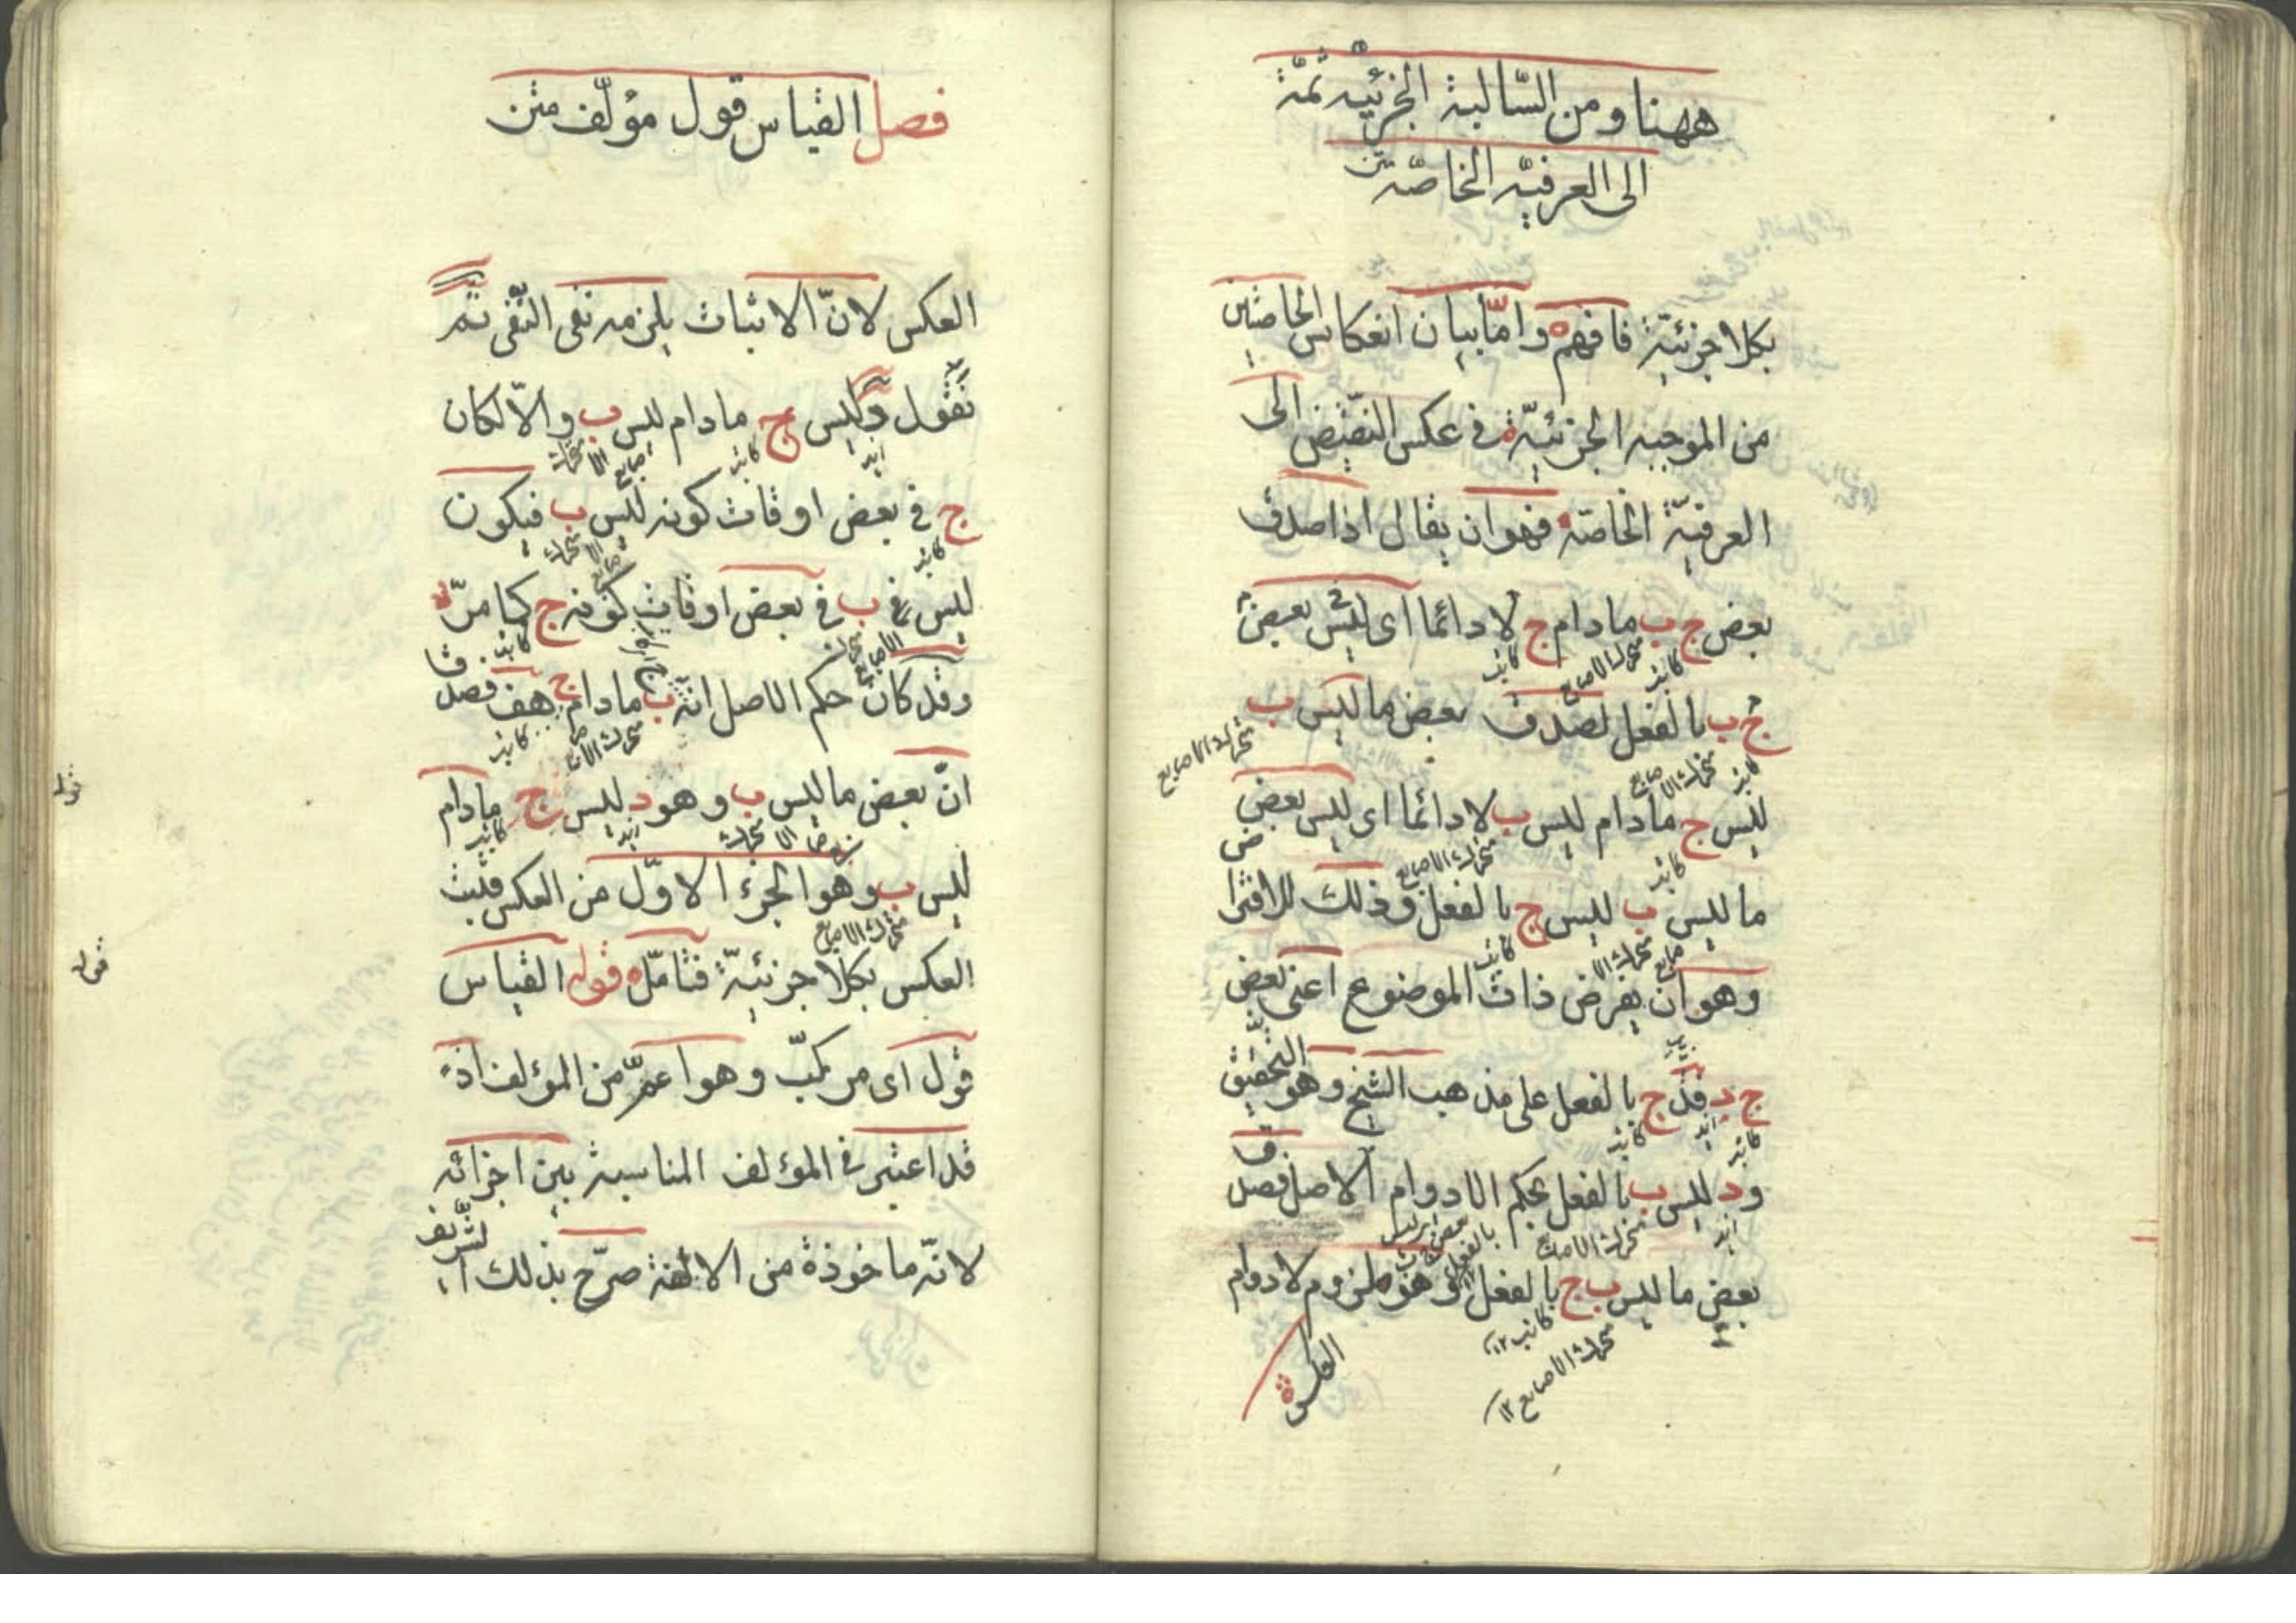 ههنا ومن السّالبة الجزئيّة ثمّة
الى العرفيّة الخاصّة متن
بكلا جزئيّة فافهم وامّا بيان انعكاس الخاصتين
من الموجبة الجزئيّة فى عكس النّقيض الى
العرفيّة الخاصّة فهو ان يقال اذا صدق
بعض ج ب مادام ج لا دائما اى ليس بعض
ج ب بالفعل لصدق بعض ما ليس ب
ليس ج مادام ليس ب لا دائما اى ليس بعض
ما ليس ب ليس ج بالفعل وذلك للافتراض
وهو ان يفرض ذات الموضوع اعنى بعض
ج د فد ج بالفعل على مذهب الشيخ وهو التحقيق
ود ليس ب بالفعل بحكم اللادوام الاصل فصدق
بعض ما ليس ب ج بالفعل وهو ملزوم لادوام
العكس
فصل القياس قول مؤلّف متن
العكس لانّ الاثبات يلزمه نفى النّفى ثمّ
نقول د ليس ج مادام ليس ب والّا لكان
ج فى بعض اوقات كونه ليس ب فيكون
ليس ب فى بعض اوقات كونه ج كما مرّ
وقد كان حكم الاصل انّه ب مادام ج هف فصدق
انّ بعض ما ليس ب وهو د ليس ج مادام
ليس ب وهو الجزء الاوّل من العكس فثبت
العكس بكلا جزئيّة فتامّل قوله القياس
قول اى مركّب وهو اعمّ من المؤلف اذ
قد اعتبر فى المؤلف المناسبة بين اجزائه
لانّه ماخوذة من الالفة صرّح بذلك الشّريف
قوله
قوله